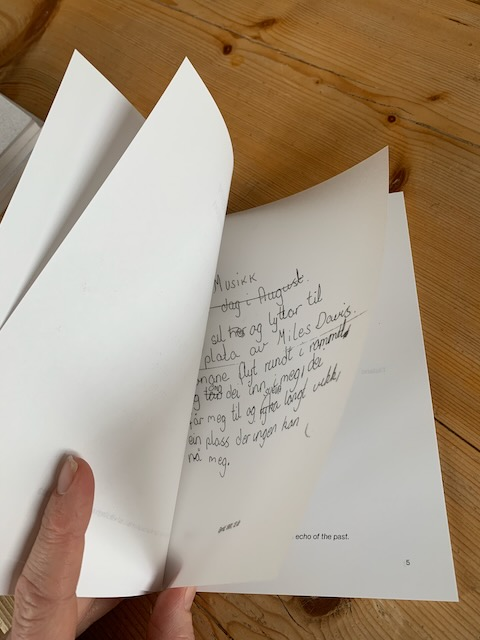 Musikk
dag i August.
sit og lyttar til
plata av Miles Davis.
nane flyt rundt i rommet
g der inn meg, dei
får meg til og langt vekk,
ein plass der ingen kan
nå meg.
echo of the past.
5